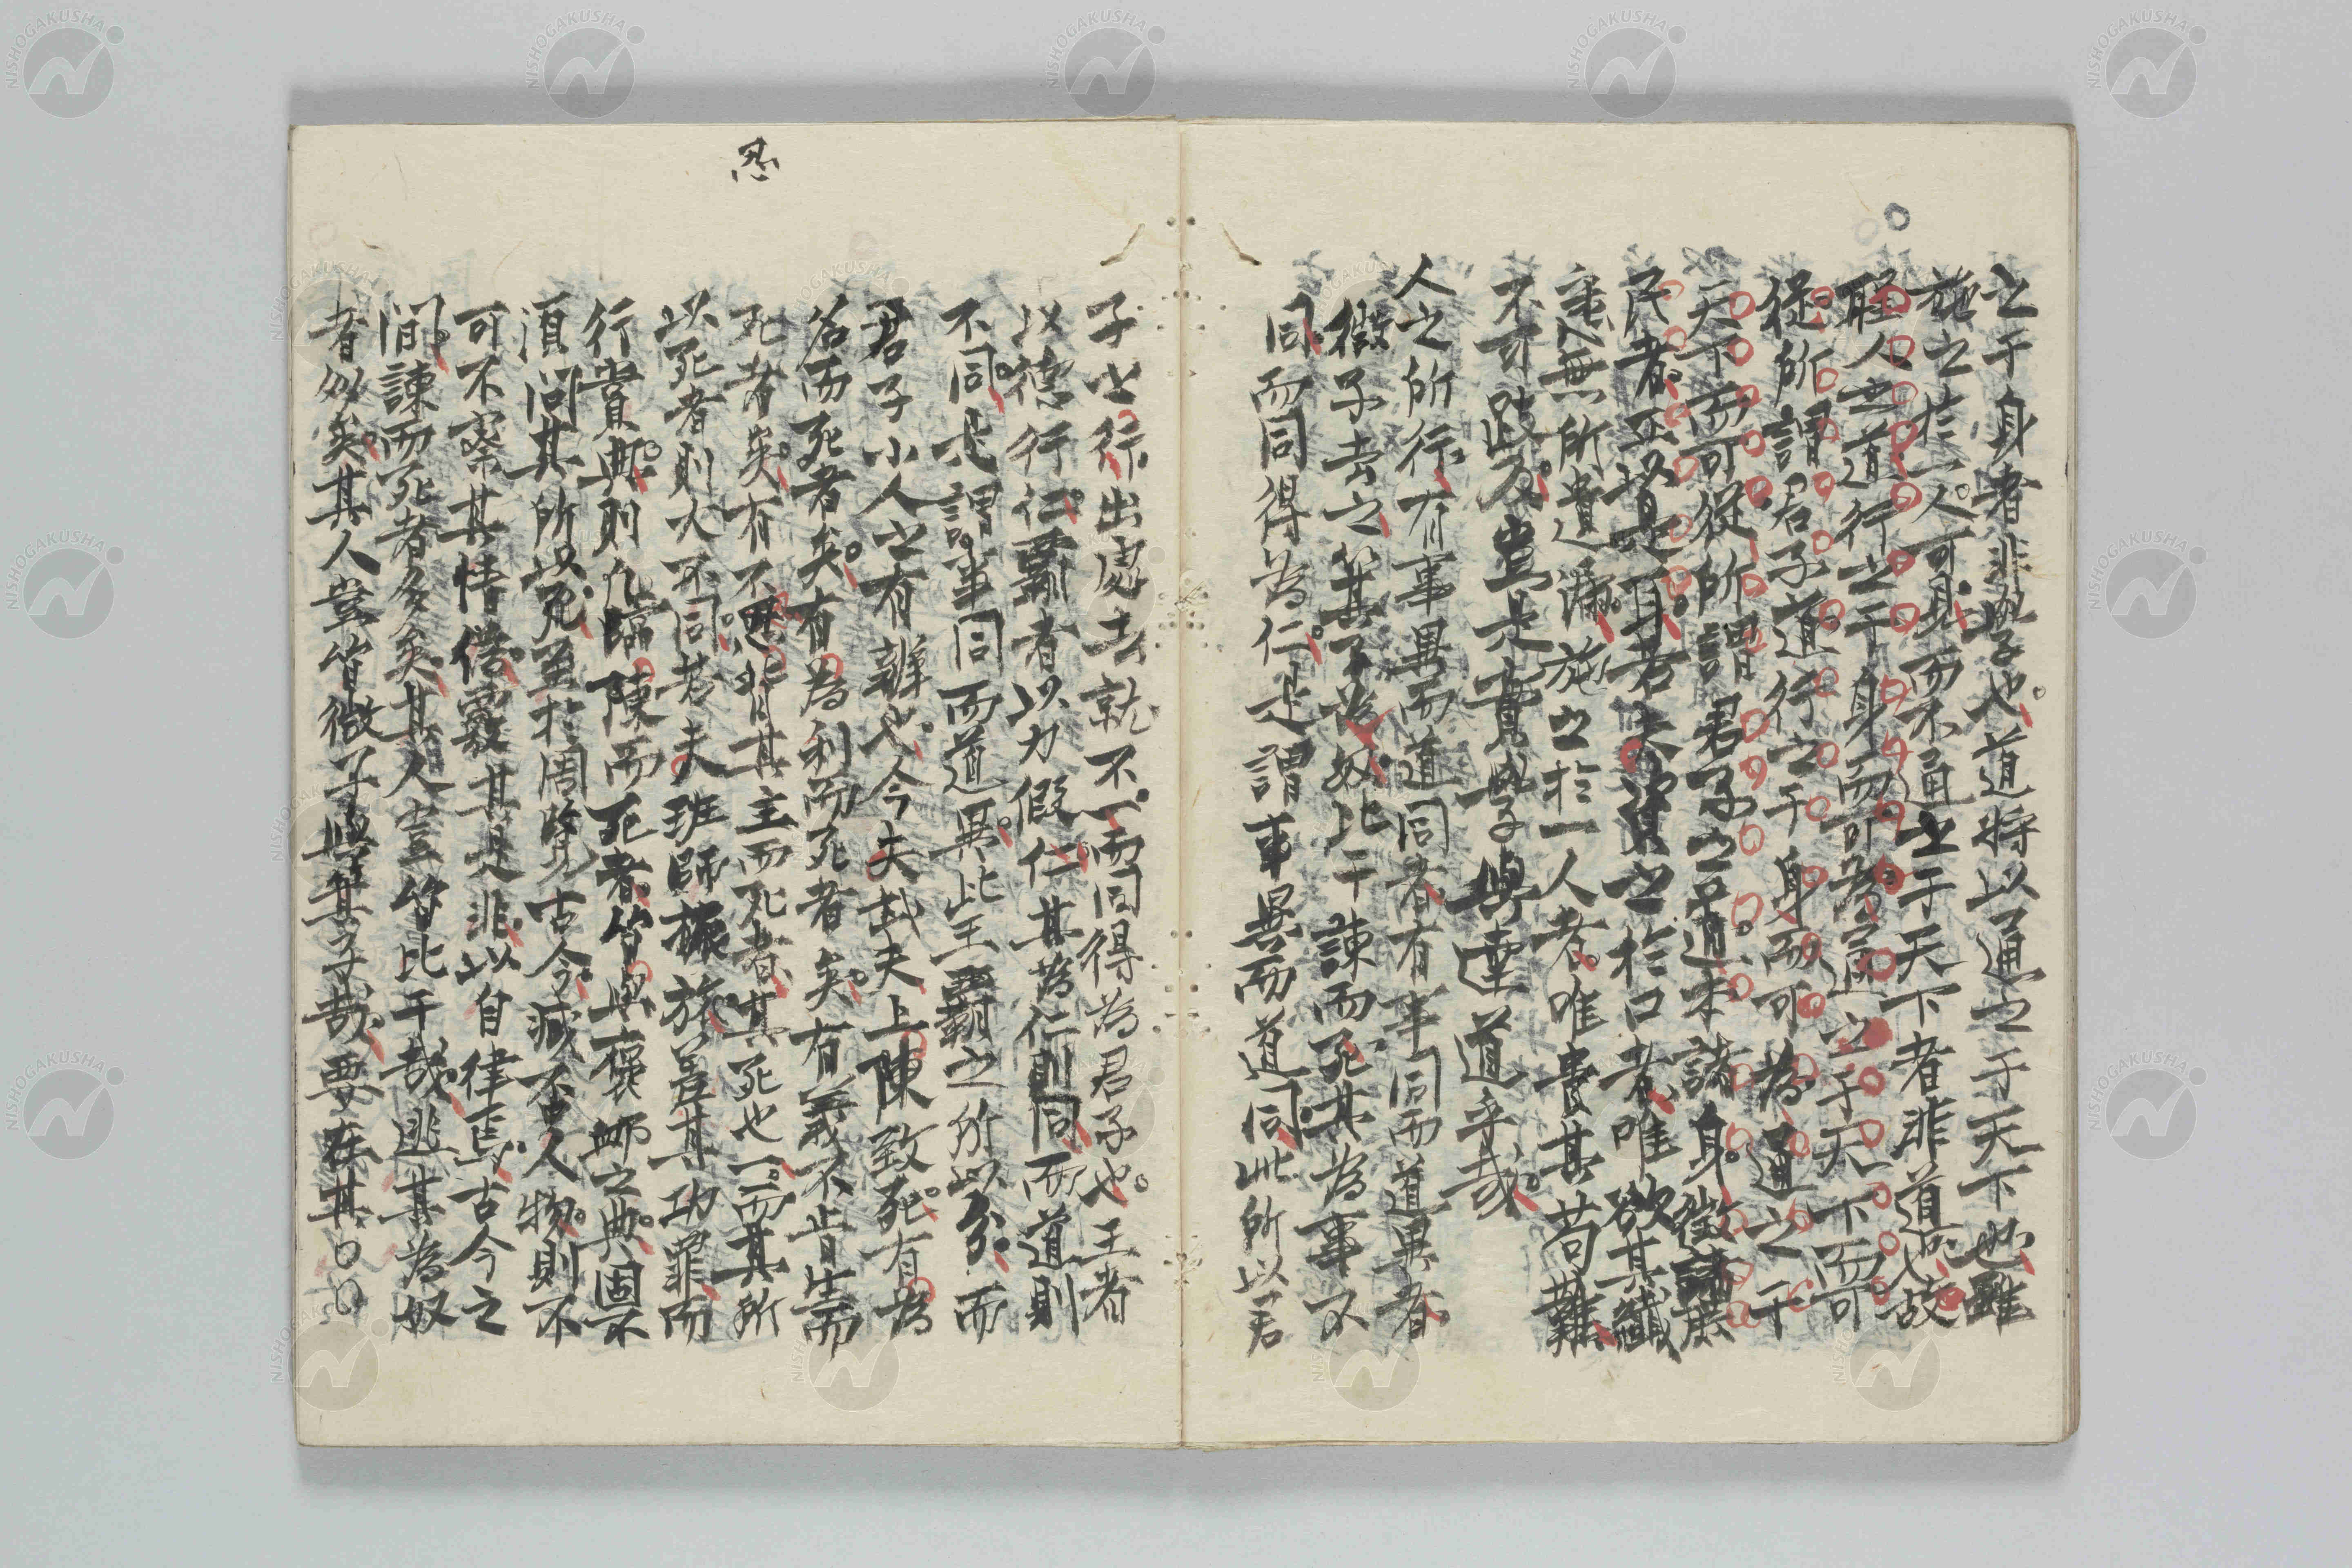 之于身者非學也。道將以通之于天下也。雖
施之於一人。可身而不通之于天下者非道也。故
聖人之道行之于身而可為通之于天下而可
從。所謂君子道行之于身而可為通之于
天下而可從所謂君子之道本諸身。徵諸庶
民者。正以是耳。若夫資之於口者唯欲其纖
毫無所遺漏。施之於一人者。唯貴其苟難
不可跂及。豈是實學與達道乎哉。
人之所行。有事異而道同者有事同而道異者
微子去之箕子為奴比干諫而死其為事不
同。而同得為仁。是謂事異而道同。此所以君
子出行出處去就不一。而同得為君子也。王者
以德行仁。霸者以力假仁其為仁則同而道則
不同。是謂事同而道異。此王霸之所以分。而
君子小人之有辨也。今夫士夫上陳致死。有為
名而死者矣。有為利而死者矣。有義不肯生而
死者矣。有不思背其主而死者。其死也一。而其所
以死者則大不同。若夫班師振旅差其功罪而
行賞典。則凡臨陳而死者。皆與褒卹之典。固不
須問其所以死。至於周覽古今。臧否人物。則不
可不察其情偽。覈其是非。以自律焉。古今之
間。諫而死者多矣。其人豈皆比干哉。逃其為奴
者多矣。其人豈皆微子與箕子哉。要在其〇〇
忍